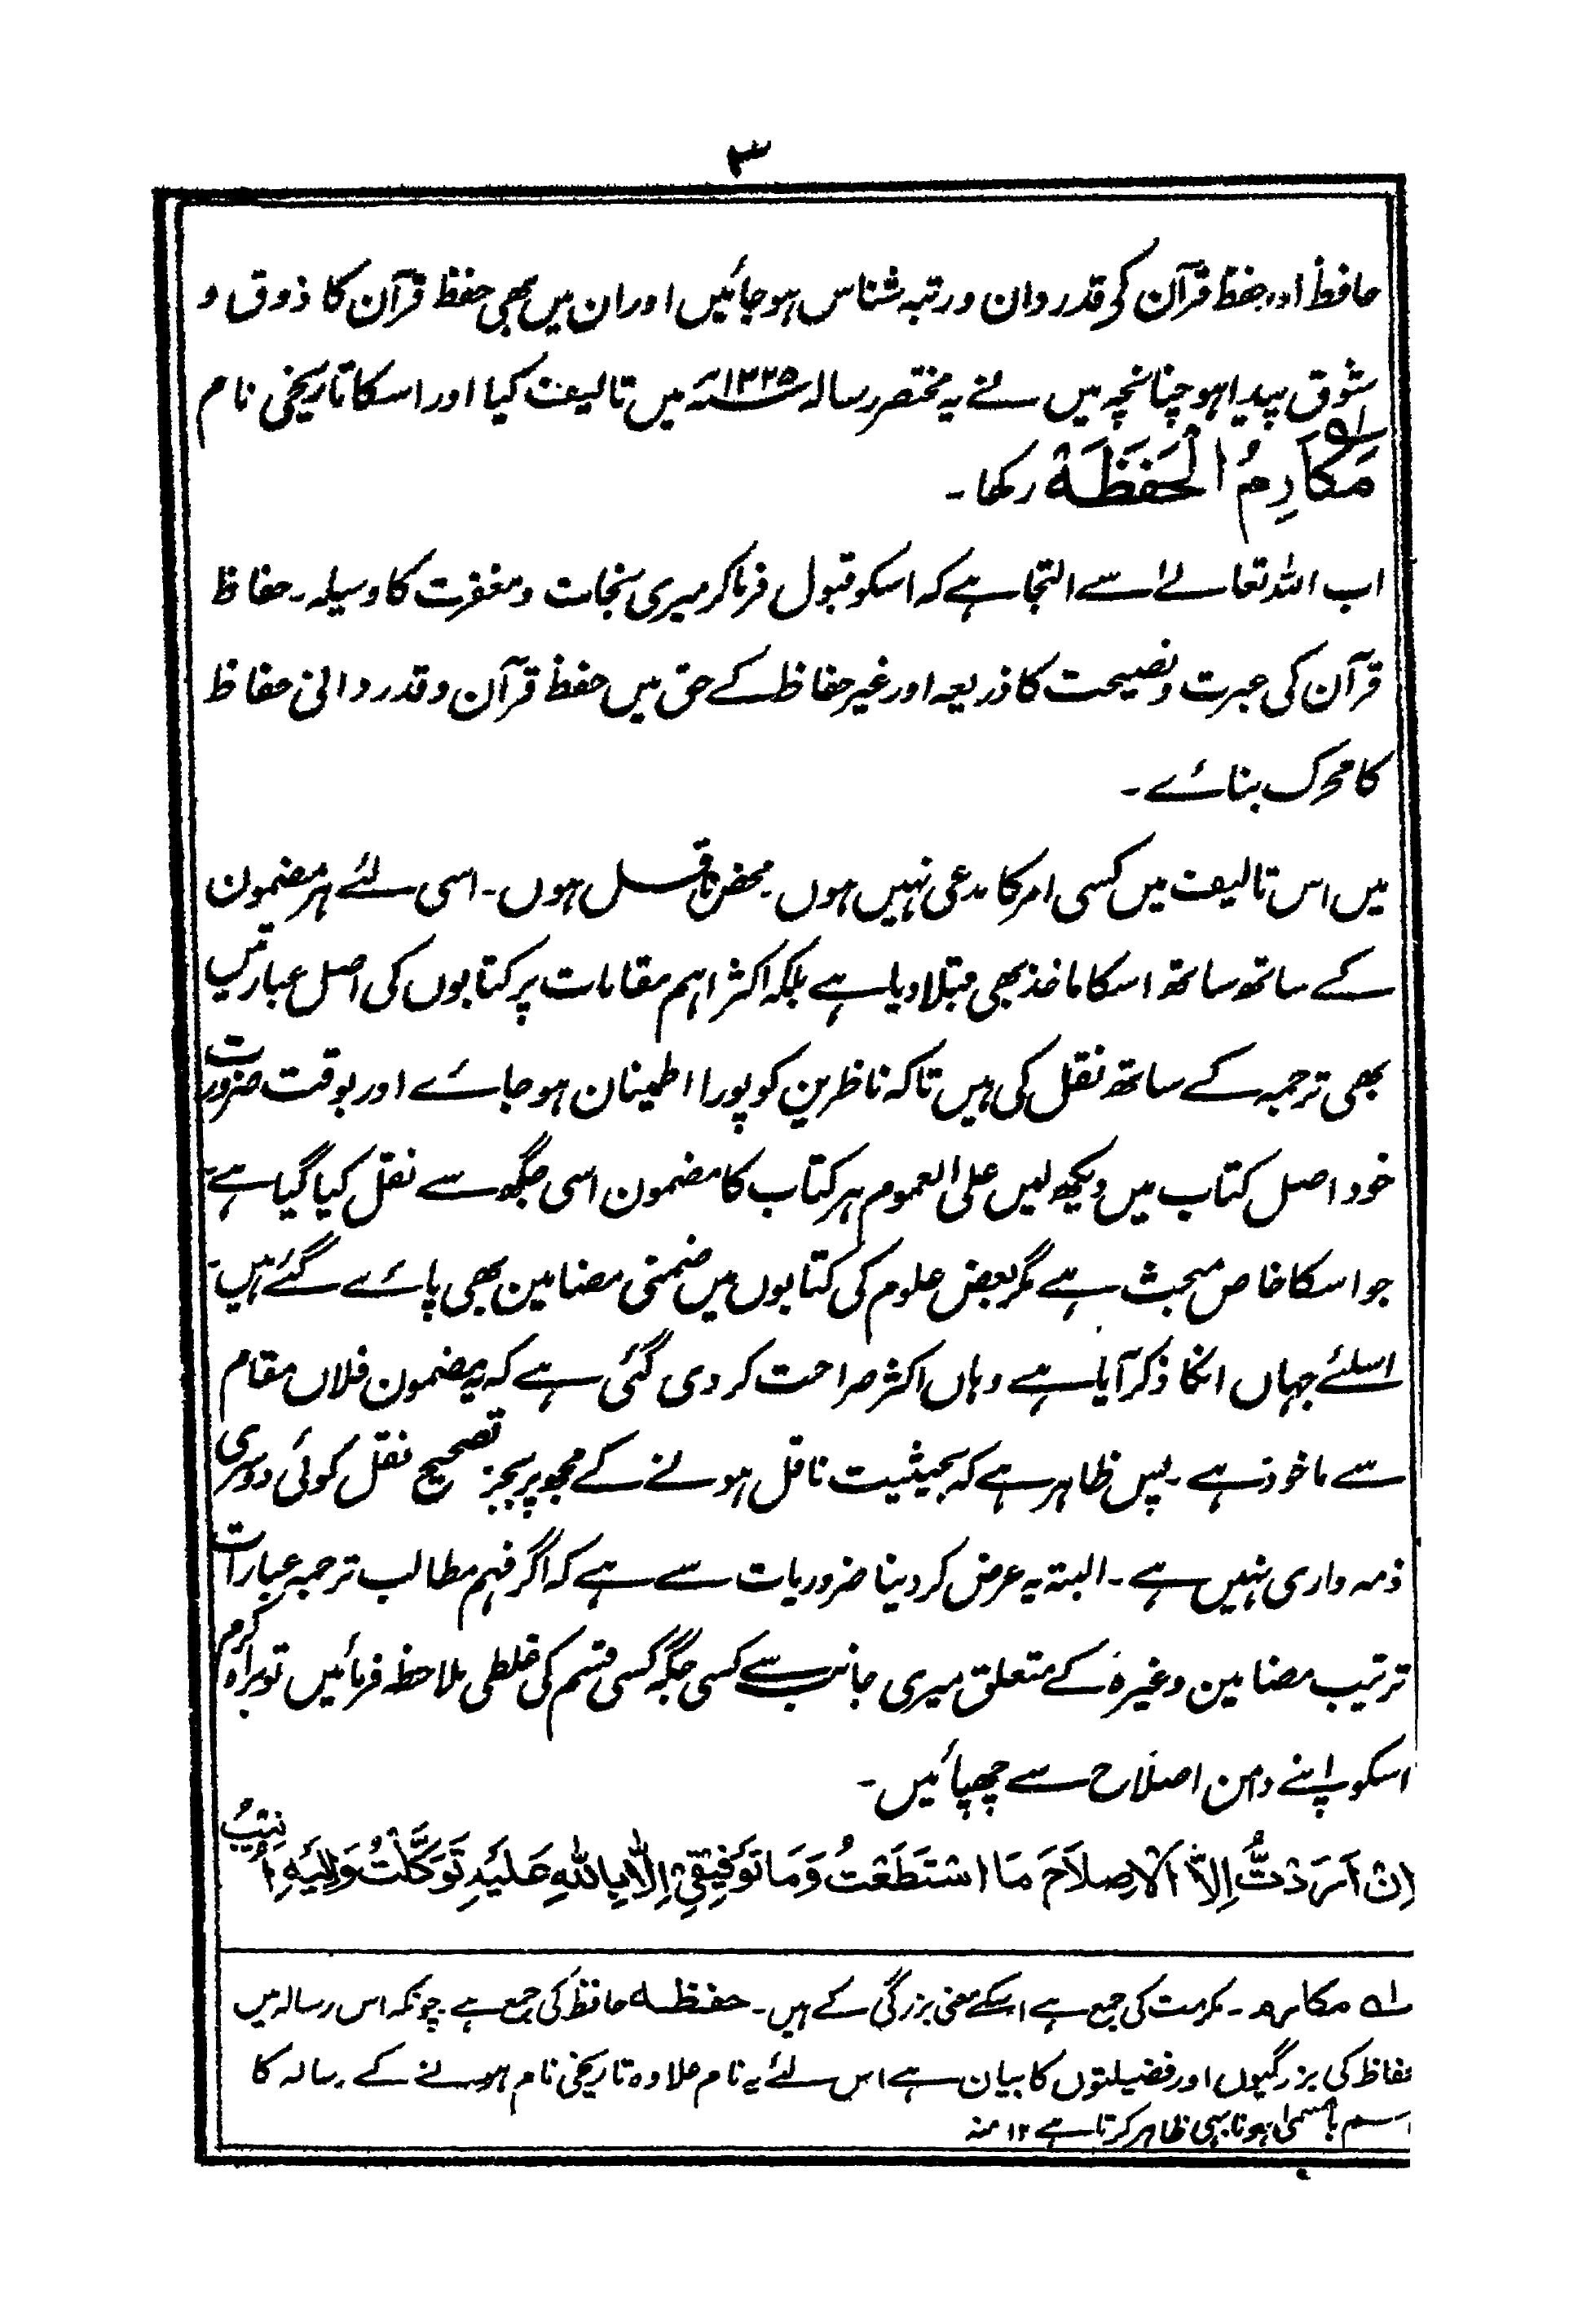 ۳
حافظ اور حفظ قرآن کی قدر دان و رتبہ شناس ہو جائیں اور ان میں بھی حفظ قرآن کا ذوق و
شوق پیدا ہو چنانچہ میں نے یہ مختصر رسالہ ۱۳۲۵؁ میں تالیف کیا اور اسکا تاریخی نام
مَکَارِمُ الْحَفَظَۃ؎۱ رکھا۔
اب اللہ تعالےٰ سے التجا ہے کہ اسکو قبول فرما کر میری نجات و مغفرت کا وسیلہ۔ حفاظ
قرآن کی عبرت و نصیحت کا ذریعہ اور غیر حفاظ کے حق میں حفظ قرآن و قدر دانی حفاظ
کا محرک بنائے۔
میں اس تالیف میں کسی امر کا مدعی نہیں ہوں۔ محض ناقل ہوں۔ اسی لئے ہر مضمون
کے ساتھ ساتھ اسکا ماخذ بھی بتلا دیا ہے بلکہ اکثر اہم مقامات پر کتابوں کی اصل عبارتیں
بھی ترجمہ کے ساتھ نقل کی ہیں تاکہ ناظرین کو پورا اطمینان ہو جائے اور بوقت ضرورت
خود اصل کتاب میں دیکھ لیں علی العموم ہر کتاب کا مضمون اسی جگہ سے نقل کیا گیا ہے
جو اسکا خاص مبحث ہے مگر بعض علوم کی کتابوں میں ضمنی مضامین بھی پائے گئے ہیں۔
اسلئے جہاں انکا ذکر آیا ہے وہاں اکثر صراحت کر دی گئی ہے کہ یہ مضمون فلاں مقام
سے ماخوذ ہے۔ پس ظاہر ہے کہ بحیثیت ناقل ہونے کے مجھ پر بجز تصحیح نقل کوئی دوسری
ذمہ داری نہیں ہے۔ البتہ یہ عرض کر دینا ضروریات سے ہے کہ اگر فہم مطالب ترجمہ عبارات
ترتیب مضامین وغیرہ کے متعلق میری جانب سے کسی جگہ کسی قسم کی غلطی ملاحظہ فرمائیں تو براہ کرم
اسکو اپنے دامن اصلاح سے چھپائیں۔
اِنْ اَرَدْتُّ اِلَّا الْاِصْلَاحَ مَا اسْتَطَعْتُ وَمَا تَوْفِیْقِیْ اِلَّا بِاللّٰہِ عَلَیْہِ تَوَکَّلْتُ وَاِلَیْہِ اُنِیْبُ
؎۱ مکارم۔ مکرمت کی جمع ہے اسکے معنی بزرگی کے ہیں۔ حفظہ حافظ کی جمع ہے۔ چونکہ اس رسالہ میں
حفاظ کی بزرگیوں اور فضیلتوں کا بیان ہے اس لئے یہ نام علاوہ تاریخی نام ہونے کے رسالہ کا
اسم بامسمیٰ ہونا بھی ظاہر کرتا ہے ۱۲ منہ